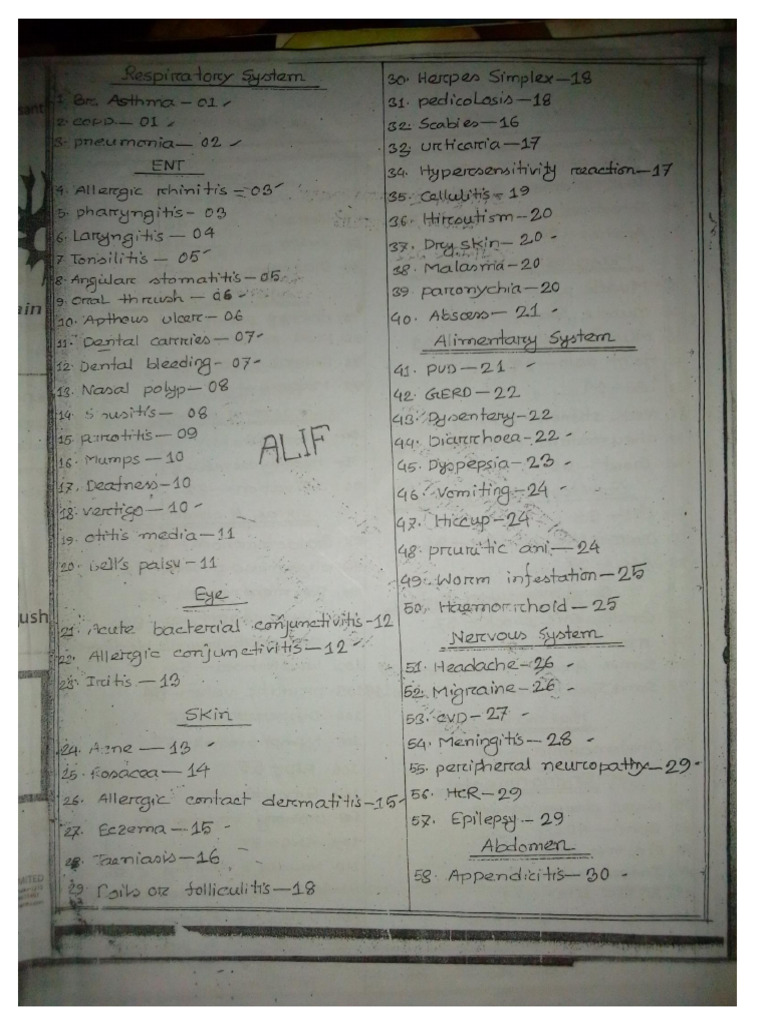 Respiratory System
1. Br. Asthma – 01
2. COPD – 01
3. pneumonia – 02
ENT
4. Allergic rhinitis – 03
5. pharyngitis – 03
6. Laryngitis – 04
7. Tonsilitis – 05
8. Angular stomatitis – 05
9. Oral thrush – 06
10. Apthous ulcer – 06
11. Dental carries – 07
12. Dental bleeding – 07
13. Nasal polyp – 08
14. Sinusitis – 08
15. parotitis – 09
16. Mumps – 10
17. Deafness – 10
18. vertigo – 10
19. otitis media – 11
20. Bell's palsy – 11
Eye
21. Acute bacterial conjunctivitis – 12
22. Allergic conjunctivitis – 12
23. Iritis – 13
Skin
24. Acne – 13
25. Rosacea – 14
26. Allergic contact dermatitis – 15
27. Eczema – 15
28. Taeniasis – 16
29. Boils or folliculitis – 18
ALIF
30. Herpes Simplex – 18
31. pedicolosis – 18
32. Scabies – 16
33. urticaria – 17
34. Hypersensitivity reaction – 17
35. Cellulitis – 19
36. Hirsutism – 20
37. Dry skin – 20
38. Malasma – 20
39. paronychia – 20
40. Abscess – 21
Alimentary System
41. PUD – 21
42. GERD – 22
43. Dysentery – 22
44. Diarrhoea – 22
45. Dyspepsia – 23
46. Vomiting – 24
47. Hiccup – 24
48. pruritic ani – 24
49. Worm infestation – 25
50. Haemorrhoid – 25
Nervous System
51. Headache – 26
52. Migraine – 26
53. CVD – 27
54. Meningitis – 28
55. peripheral neuropathy – 29
56. HCR – 29
57. Epilepsy – 29
Abdomen
58. Appendicitis – 30
ain
ush